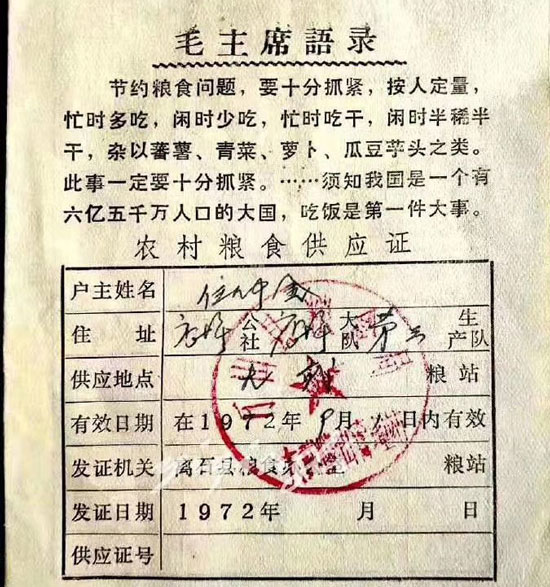 毛主席語录
节约粮食问题，要十分抓紧，按人定量，
忙时多吃，闲时少吃，忙时吃干，闲时半稀半
干，杂以蕃薯、青菜、萝卜、瓜豆芋头之类。
此事一定要十分抓紧。……须知我国是一个有
六亿五千万人口的大国，吃饭是第一件大事。
农村粮食供应证
户主姓名
住 址 公社 大队 生产队
供应地点 粮站
有效日期 在1972年9月 日内有效
发证机关 离石县粮食 粮站
发证日期 1972年 月 日
供应证号